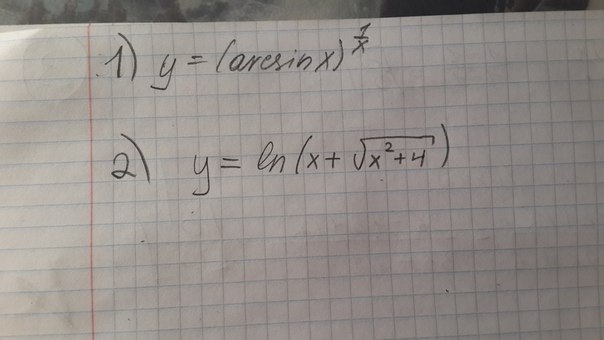 1) y = (arcsin x)^(1/x)
2) y = ln(x + √(x² + 4))